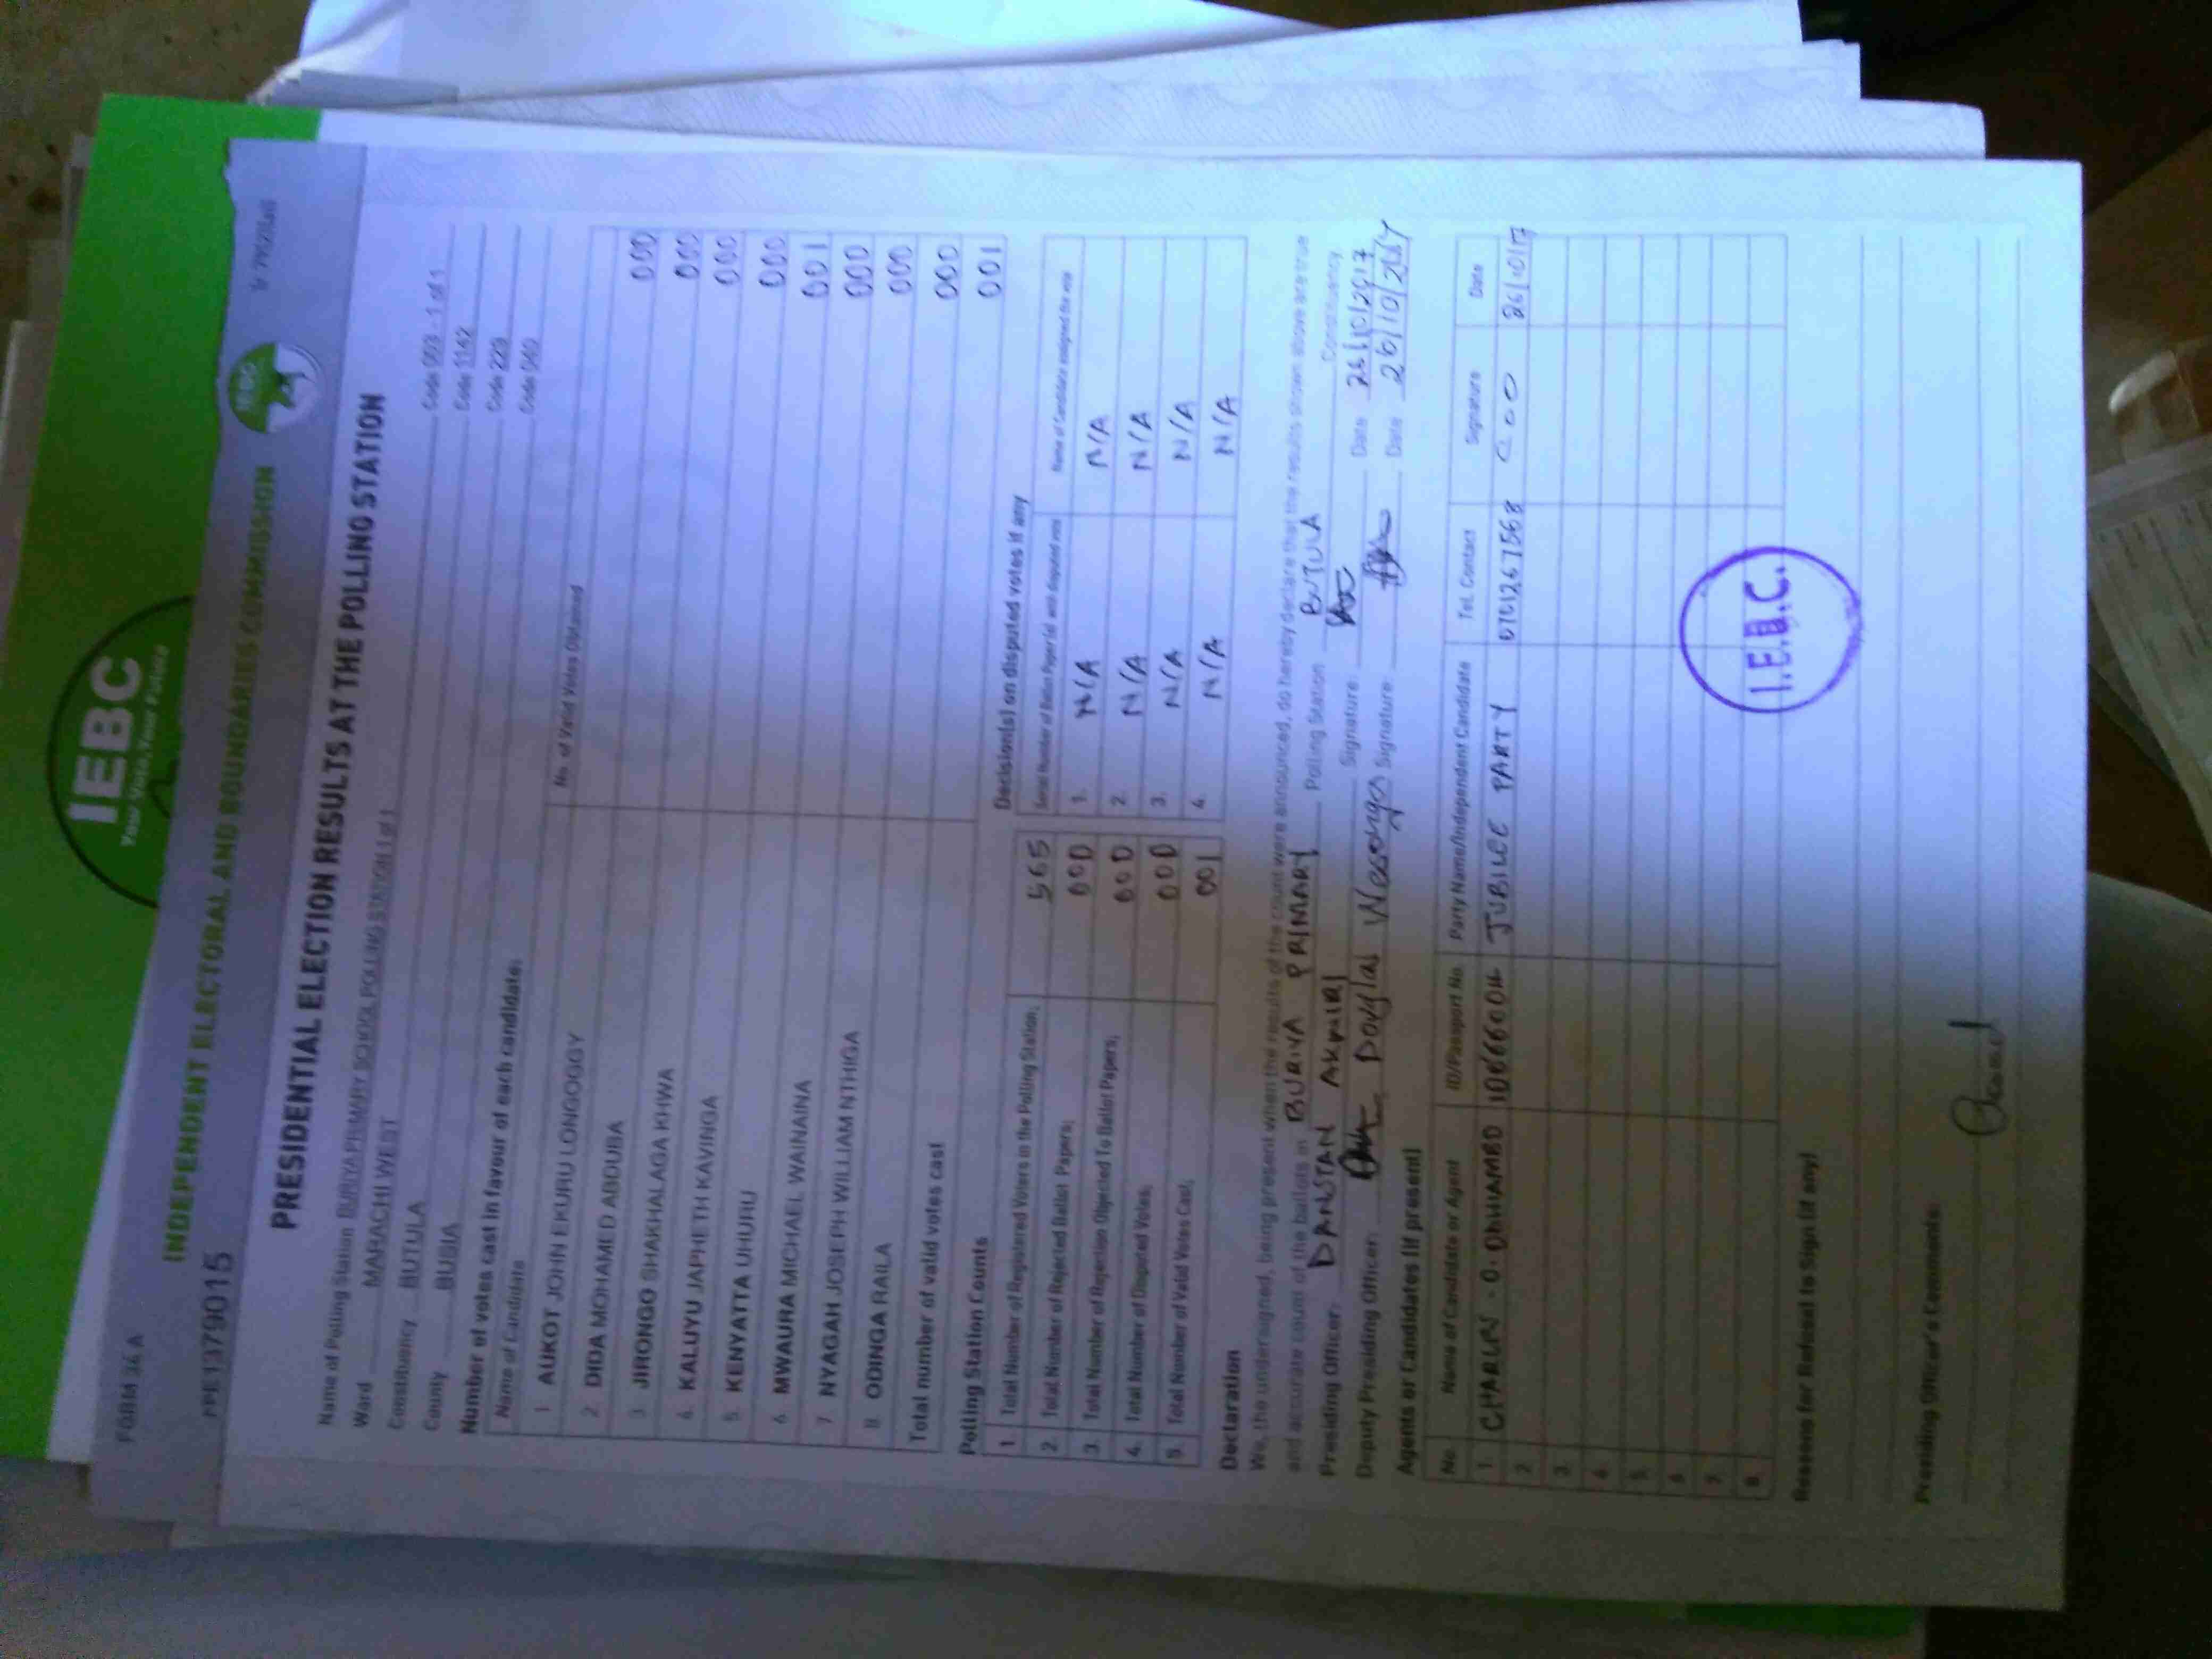 IEBC
Your Vote, Your Future
FORM 34 A
INDEPENDENT ELECTORAL AND BOUNDARIES COMMISSION
PRE1379015
PRESIDENTIAL ELECTION RESULTS AT THE POLLING STATION
Name of Polling Station BURIYA PRIMARY SCHOOL POLLING STATION 1 of 1 Code 003 - 1 of 1
Ward MARACHI WEST Code 1142
Constituency BUTULA Code 229
County BUSIA Code 040
Number of votes cast in favour of each candidate:
Name of Candidate No. of Valid Votes Obtained
1 AUKOT JOHN EKURU LONGOGGY 000
2 DIDA MOHAMED ABDUBA 000
3 JIRONGO SHAKHALAGA KHWA 000
4. KALUYU JAPHETH KAVINGA 000
5. KENYATTA UHURU 001
6. MWAURA MICHAEL WAINAINA 000
7. NYAGAH JOSEPH WILLIAM NTHIGA 000
8. ODINGA RAILA 000
Total number of valid votes cast 001
Polling Station Counts
1. Total Number of Registered Voters in the Polling Station; 565
2. Total Number of Rejected Ballot Papers; 000
3. Total Number of Rejection Objected To Ballot Papers; 000
4. Total Number of Disputed Votes; 000
5. Total Number of Valid Votes Cast; 001
Decision(s) on disputed votes if any
Serial Number of Ballot Paper(s) with disputed vote Name of Candidate assigned the vote
1. N/A N/A
2. N/A N/A
3. N/A N/A
4. N/A N/A
Declaration
We, the undersigned, being present when the results of the count were announced, do hereby declare that the results shown above are true
and accurate count of the ballots in BURIYA PRIMARY Polling Station BUTULA Constituency
Presiding Officer: DANSTAN Signature: Date 26/10/2017
Deputy Presiding Officer: Douglas Wesonga Signature: Date 26/10/2017
Agents or Candidates (if present)
No. Name of Candidate or Agent ID/Passport No. Party Name/Independent Candidate Tel. Contact Signature Date
1. CHARLES O. ODHIAMBO 10666004 JUBILEE PARTY 0701267568 26/10/17
2.
3.
4.
5.
6.
7.
8.
I.E.B.C.
Reasons for Refusal to Sign (if any)
Presiding Officer's Comments: